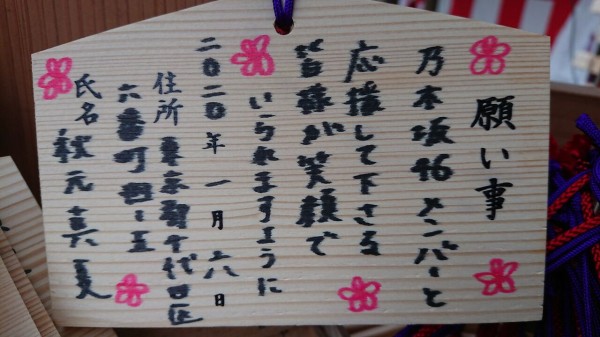 願い事
乃木坂46メンバーと
応援して下さる
皆様が笑顔で
いられますように
二〇二〇年一月六八日
住所 東京都千代田区
六番町四-五
氏名 秋元真夏